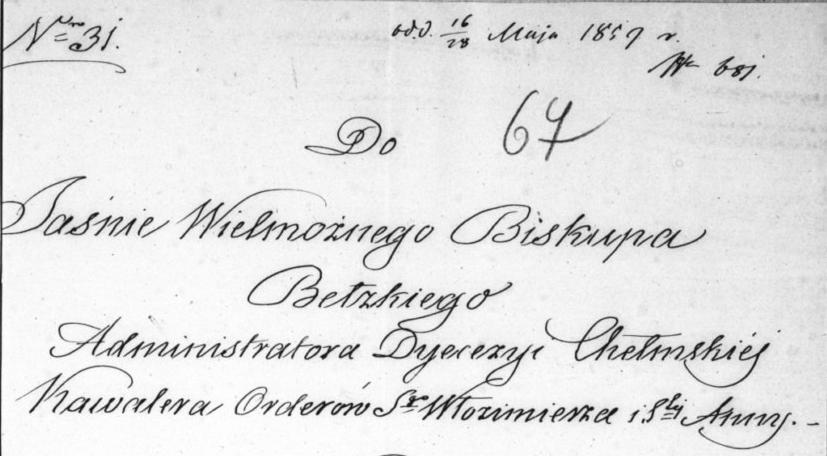 Nro 31.
odd. 16/28 Maja 1857 r.
Nr 681.
Do
67
Jaśnie Wielmożnego Biskupa
Bełzkiego
Administratora Dyecezyi Chełmskiéj
Kawalera Orderów Sgo Włozimierza i Stéj Anny. -